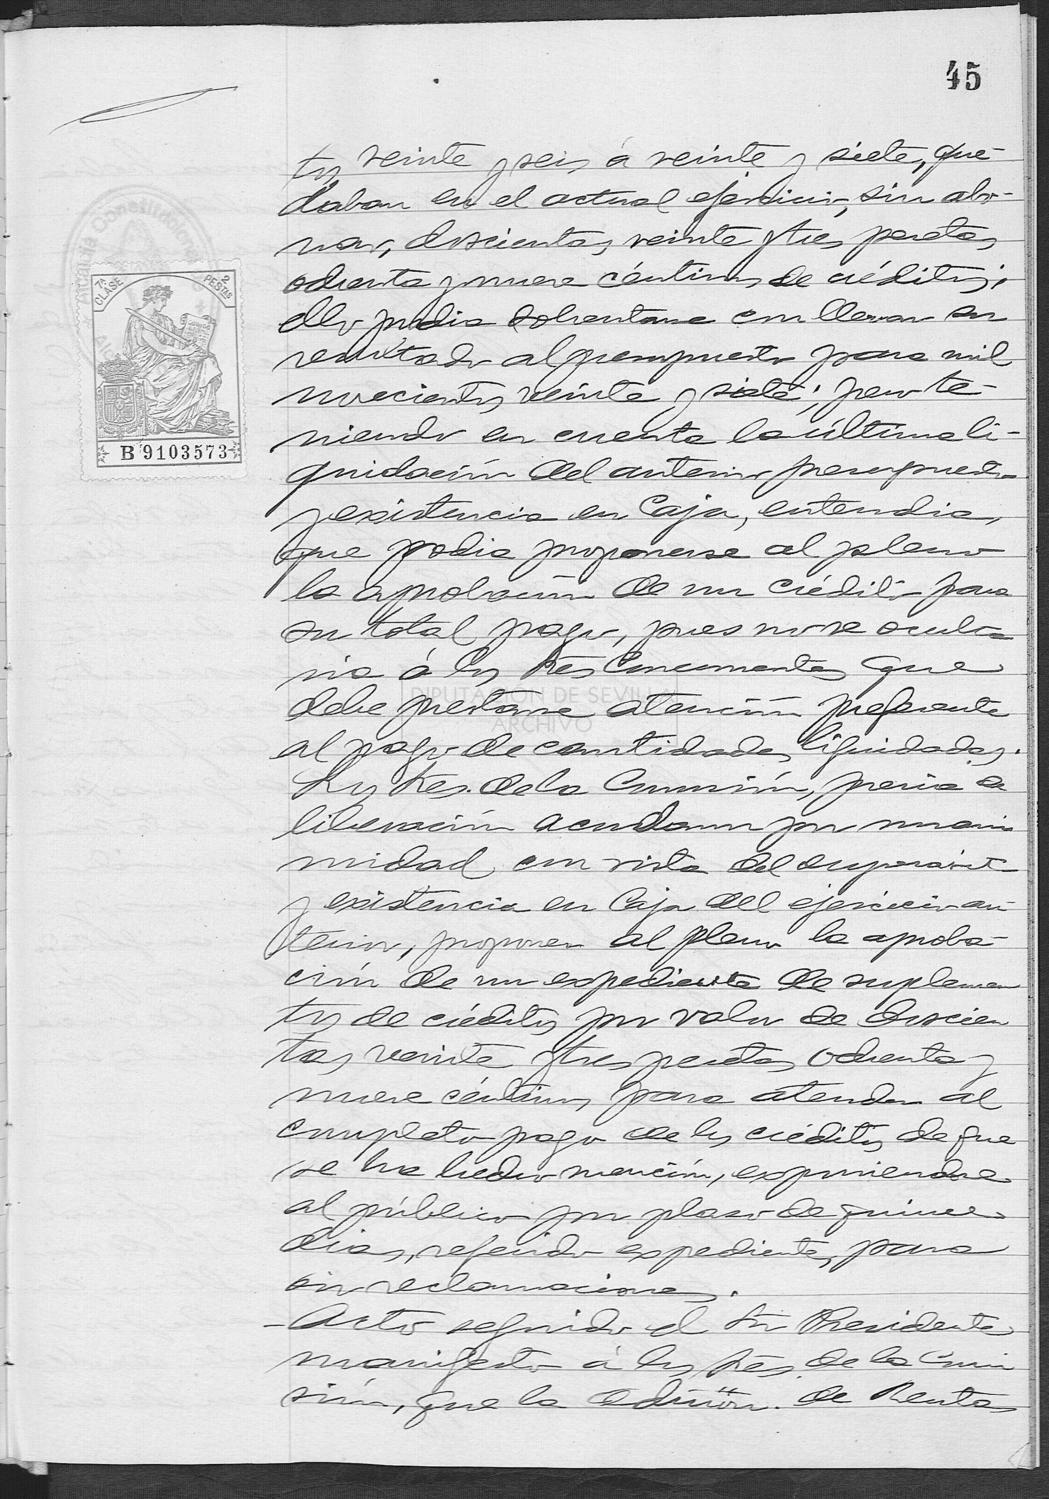 45
tos veinte y seis á veinte y siete, que-
daban en el actual ejercicio, sin abo-
nar, doscientas veinte y tres pesetas
ochenta y nueve céntimos de créditos;
ello podia solventarse con llevar su
resultado al presupuesto para mil
novecientos veinte y siete; pero te-
niendo en cuenta la última li-
quidación del anterior presupuesto
y existencia en Caja, entendia,
que podia proponerse al pleno
la aprobación de un crédito para
su total pago, pues no se oculta-
ria á los Sres Concurrentes que
debe prestarse atención preferente
al pago de cantidades liquidadas.
Los Sres. de la Comisión, previa de
liberación acordaron por unani
midad, con vista del superávit
y existencia en Caja del ejercicio an
terior, proponer al pleno la aproba-
ción de un expediente de suplemen
tos de créditos por valor de doscien
tas veinte y tres pesetas ochenta y
nueve céntimos para atender al
completo pago de los créditos de que
se ha hecho mención, exponiendose
al público por plazo de quince
dias, referido expediente, para
oir reclamaciones.
- Acto seguido el Sr. Presidente
manifestó á los Sres. de la Comi
sión, que la Admon. de Rentas
7ª CLASE
2 PESETAS
B 9103573
Alcaldía Constitucional
DIPUTACIÓN DE SEVILLA
ARCHIVO